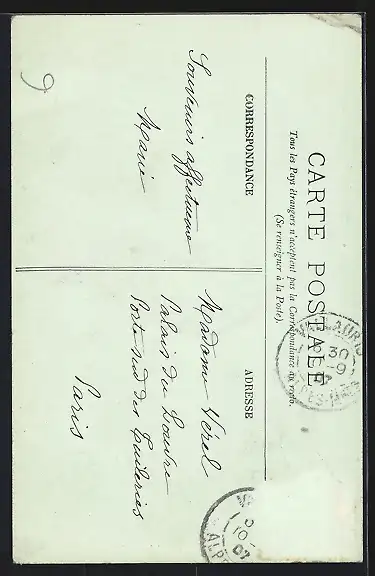 CARTE POSTALE
Tous les Pays étrangers n'acceptent pas la Correspondance au recto.
(Se renseigner à la Poste).
CORRESPONDANCE
ADRESSE
Souvenirs affectueux
Marie
Madame Vérel
Palais du Louvre
Porte sud des Tuileries
Paris
VALLAURIS
30
9
ALPES-MMES
10
ALP
9